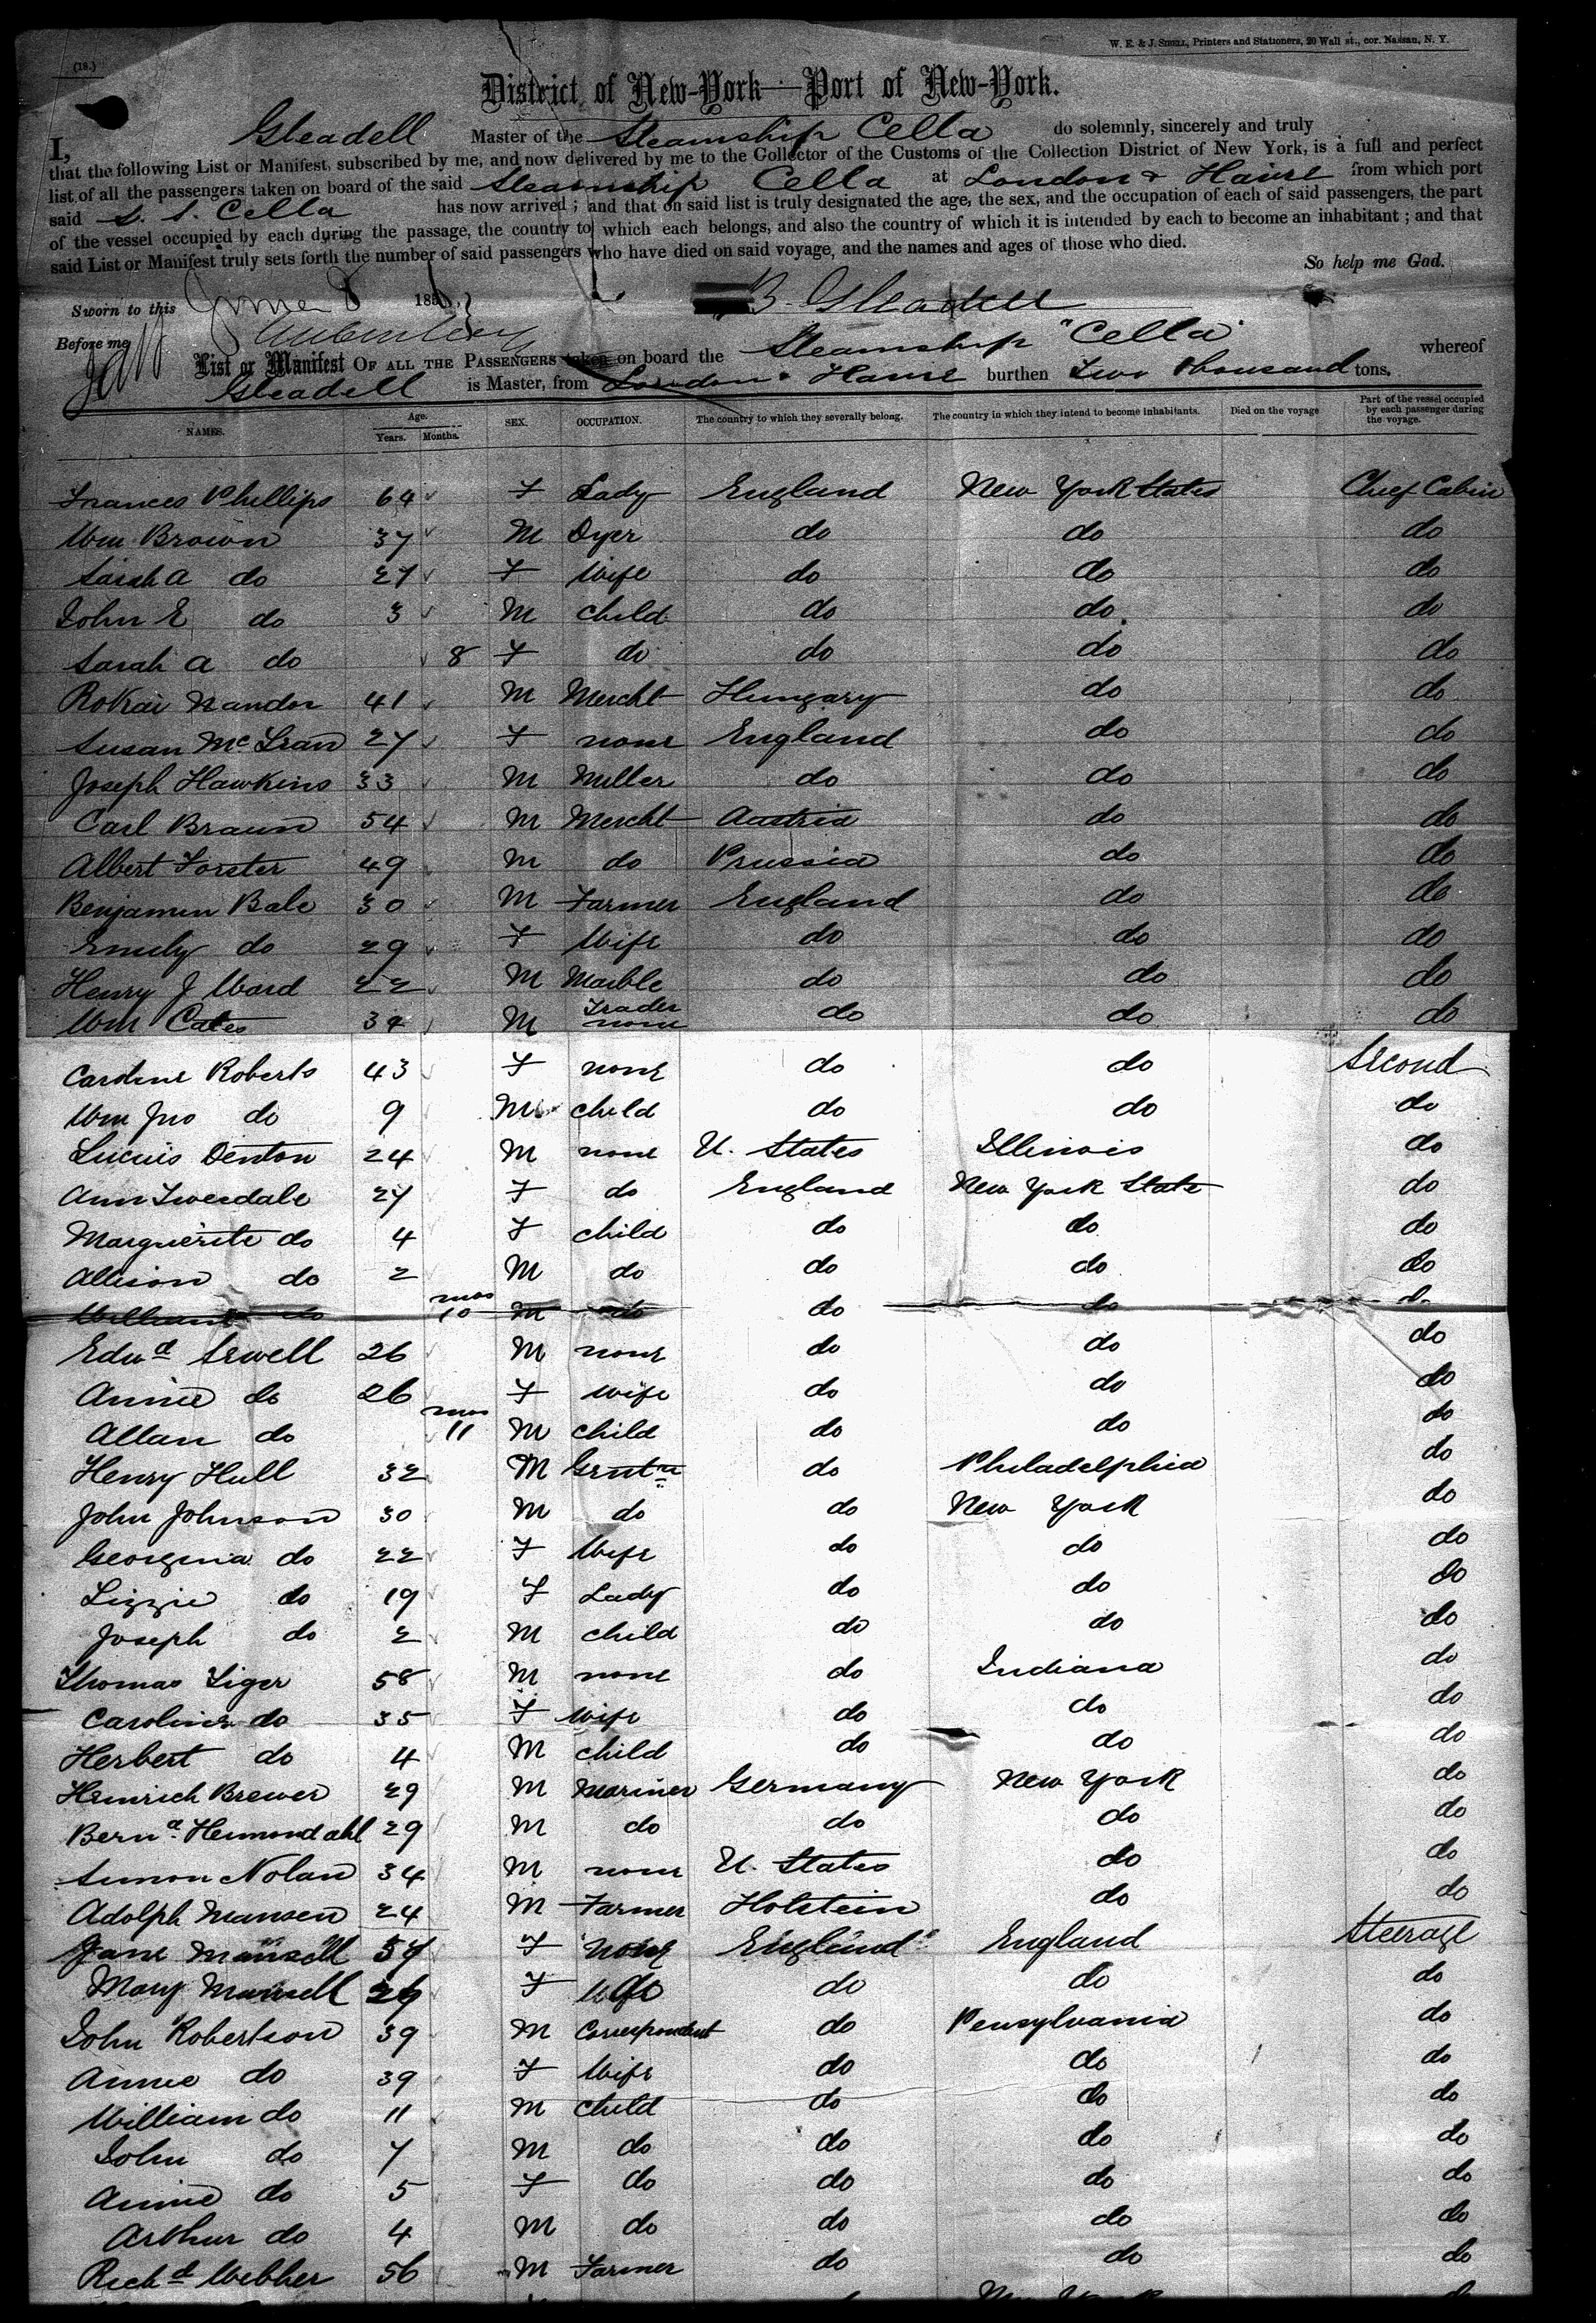 (18.)
W. E. & J. SIBELL, Printers and Stationers, 20 Wall st., cor. Nassau, N. Y.
District of New-York—Port of New-York.
I, Gleadell Master of the Steamship Cella do solemnly, sincerely and truly
that the following List or Manifest, subscribed by me, and now delivered by me to the Collector of the Customs of the Collection District of New York, is a full and perfect
list of all the passengers taken on board of the said Steamship Cella at London & Havre from which port
said S. S. Cella has now arrived; and that on said list is truly designated the age, the sex, and the occupation of each of said passengers, the part
of the vessel occupied by each during the passage, the country to which each belongs, and also the country of which it is intended by each to become an inhabitant; and that
said List or Manifest truly sets forth the number of said passengers who have died on said voyage, and the names and ages of those who died.
So help me God.
Sworn to this June 8 186 B. Gleadell
Before me
List or Manifest OF ALL THE PASSENGERS taken on board the Steamship "Cella" whereof
Gleadell is Master, from London & Havre burthen Two thousand tons.
NAMES. Age. Years. Months. SEX. OCCUPATION. The country to which they severally belong. The country in which they intend to become inhabitants. Died on the voyage Part of the vessel occupied by each passenger during the voyage.
Frances Phillips 64 F Lady England New York States Chief Cabin
Wm Brown 37 M Dyer do do do
Sarah A do 27 F Wife do do do
John E do 3 M child do do do
Sarah A do 8 F do do do do
Rokai Nandor 41 M Mercht Hungary do do
Susan McLean 27 F none England do do
Joseph Hawkins 33 M Miller do do do
Carl Braun 54 M Mercht Austria do do
Albert Forster 49 M do Prussia do do
Benjamin Bale 30 M Farmer England do do
Emily do 29 F Wife do do do
Henry J Ward 22 M Marble Trader do do do
Wm Cates 34 M none do do do
Caroline Roberts 43 F none do do Second
Wm Jno do 9 M child do do do
Lucius Denton 24 M none U. States Illinois do
Ann Twesdale 27 F do England New York State do
Marguerite do 4 F child do do do
Allison do 2 M do do do do
William do mos 10 M do do do do
Edwd Sewell 26 M none do do do
Annie do 26 F wife do do do
Allan do mos 11 M child do do do
Henry Hull 32 M Gentn do Philadelphia do
John Johnson 30 M do do New York do
Georgina do 22 F Wife do do do
Lizzie do 19 F Lady do do do
Joseph do 2 M child do do do
Thomas Tiger 58 M none do Indiana do
Caroline do 35 F Wife do do do
Herbert do 4 M child do do do
Heinrich Brewer 29 M Mariner Germany New York do
Bernd. Hemmondahl 29 M do do do do
Simon Nolan 34 M none U. States do do
Adolph Mansen 24 M Farmer Holstein do do
Jane Mansell 54 F None England England Steerage
Mary Mansell 26 F do do do
John Robertson 39 M Correspondent do Pensylvania do
Annie do 39 F Wife do do do
William do 11 M child do do do
John do 7 M do do do do
Annie do 5 F do do do do
Arthur do 4 M do do do do
Richd Webber 56 M Farmer do do do